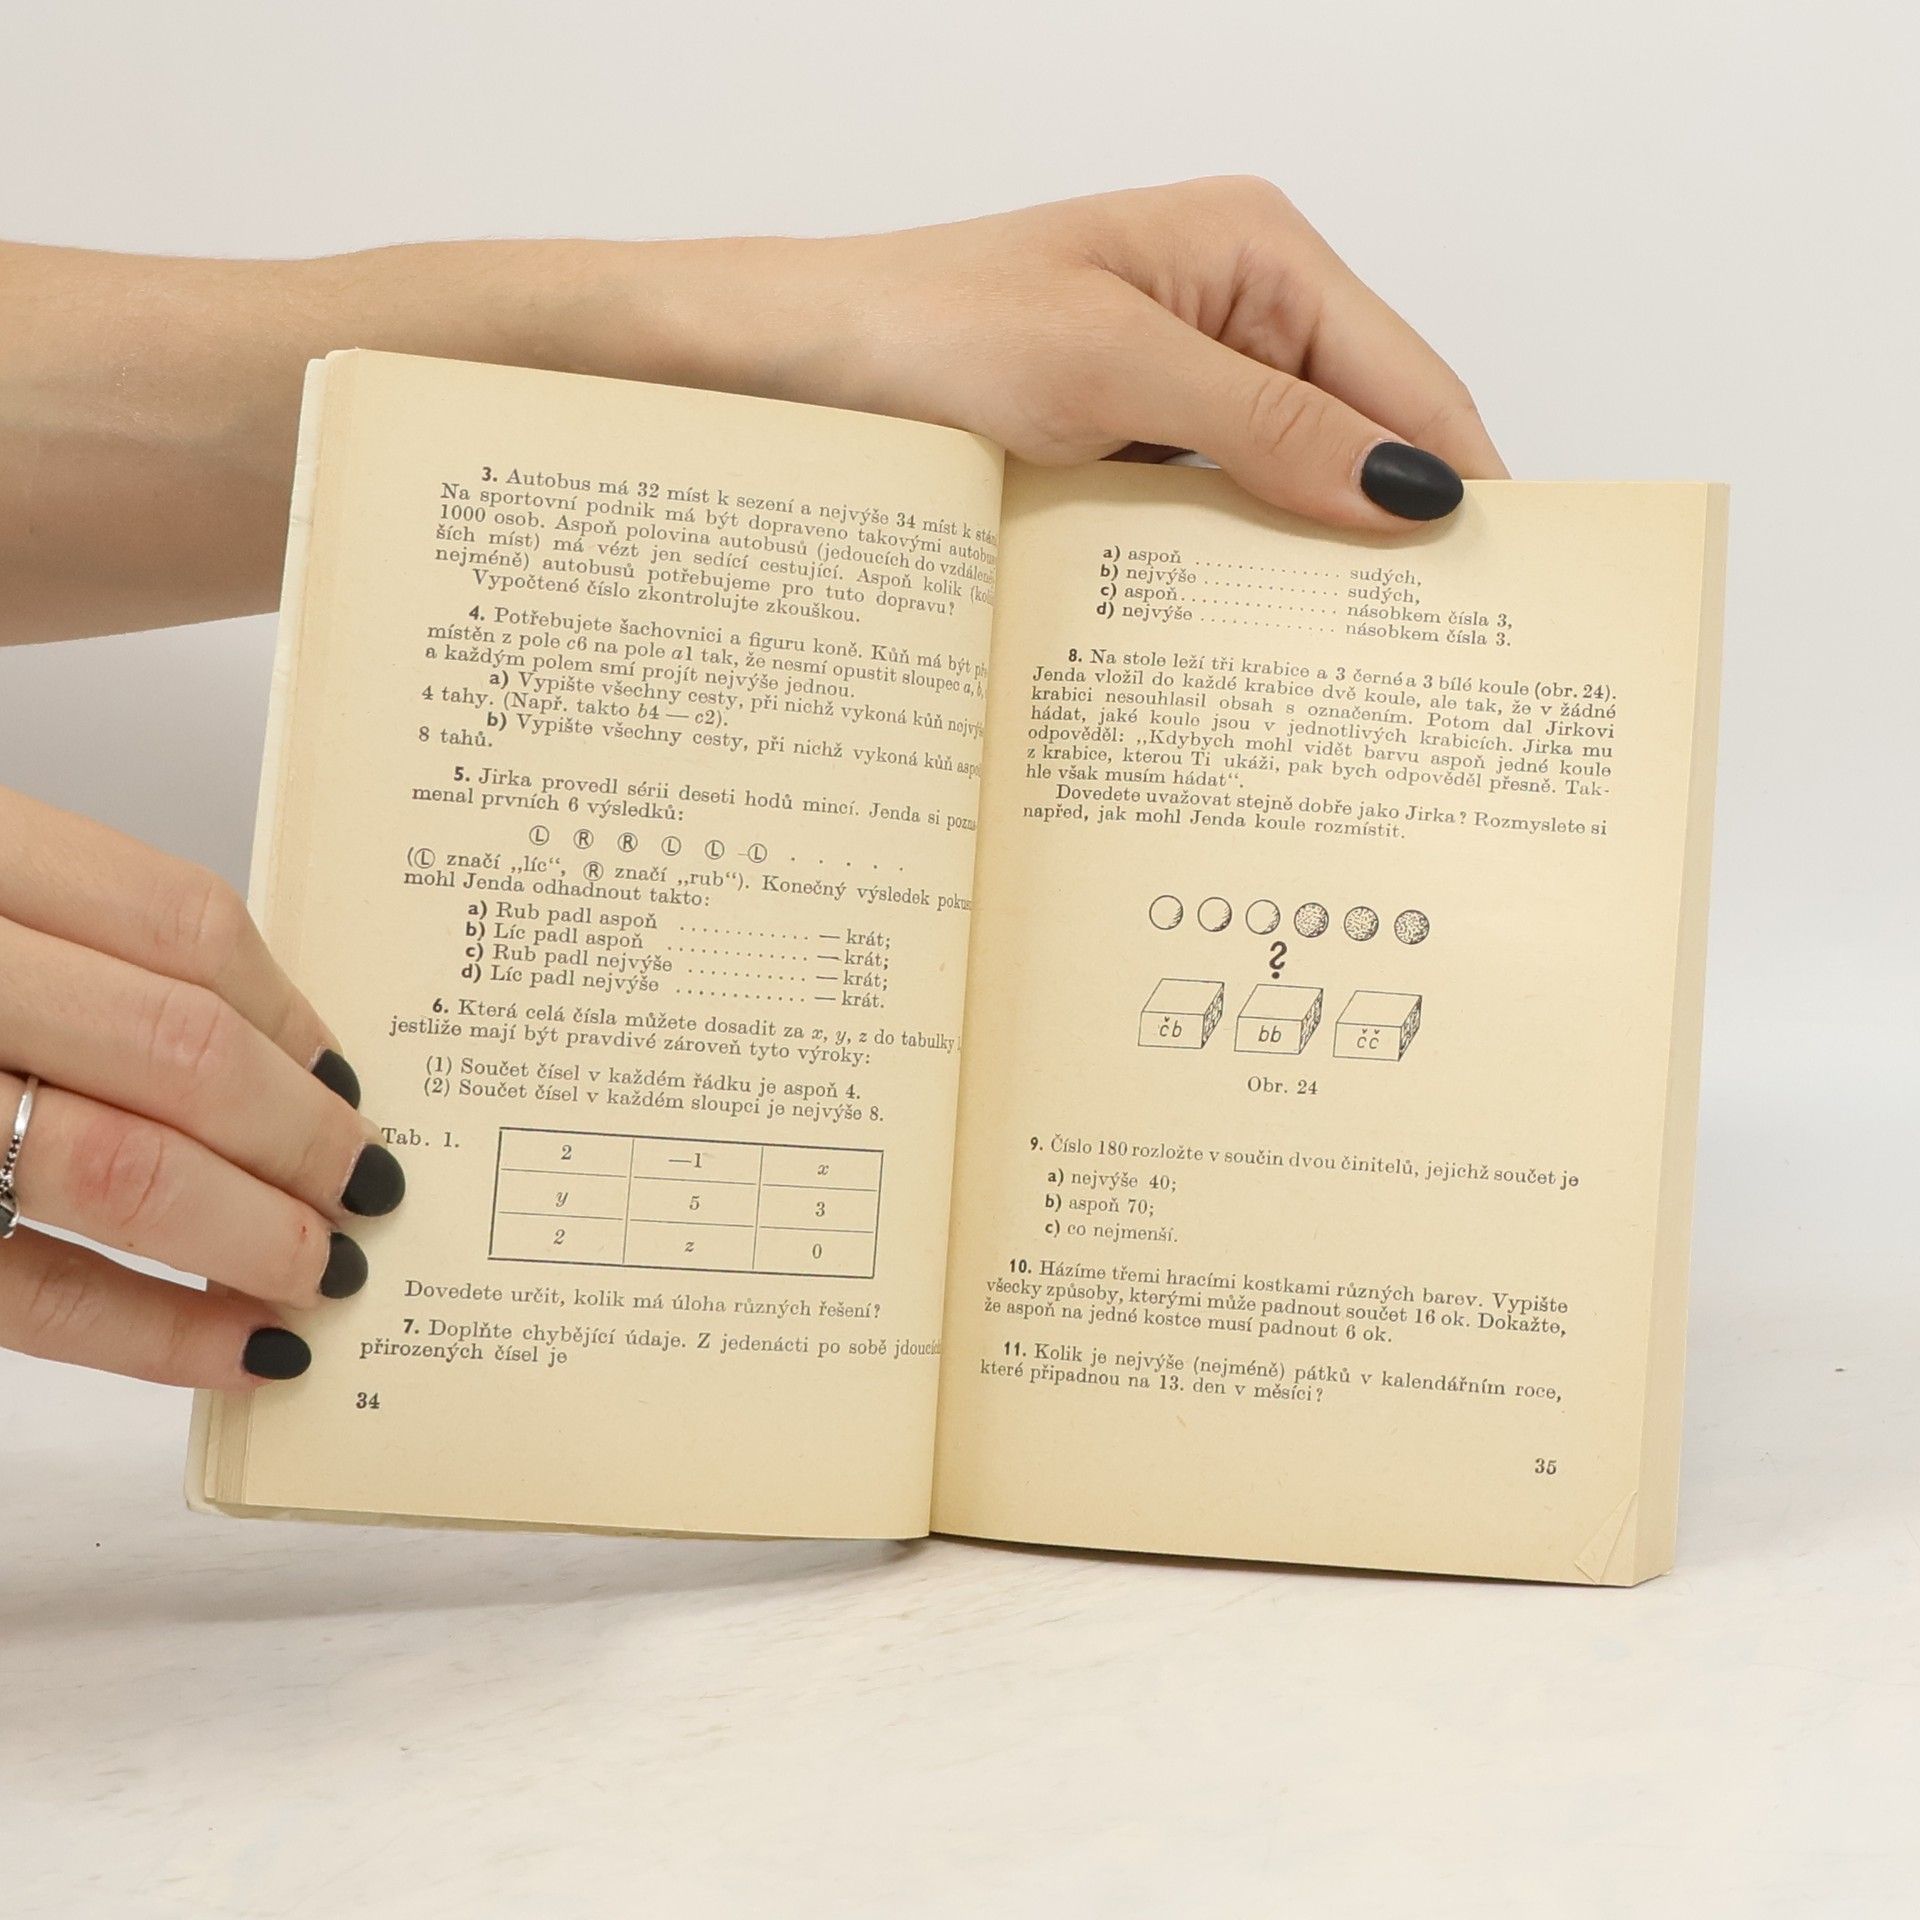 3. Autobus má 32 míst k sezení a nejvýše 34 míst k
Na sportovní podnik má být dopraveno takovými
1000 osob. Aspoň polovina autobusů (jedoucích do
ších míst) má vézt jen sedící cestující. Aspoň kolik
nejméně) autobusů potřebujeme pro tuto dopravu?
Vypočtené číslo zkontrolujte zkouškou.
4. Potřebujete šachovnici a figuru koně. Kůň má být
místěn z pole c6 na pole a1 tak, že nesmí opustit sloupec a, b,
a každým polem smí projít nejvýše jednou.
a) Vypište všechny cesty, při nichž vykoná kůň
4 tahy. (Např. takto b4 — c2).
b) Vypište všechny cesty, při nichž vykoná kůň
8 tahů.
5. Jirka provedl sérii deseti hodů mincí. Jenda si
menal prvních 6 výsledků:
Ⓛ Ⓡ Ⓡ Ⓛ Ⓛ Ⓛ . . . .
(Ⓛ značí „líc“, Ⓡ značí „rub“). Konečný výsledek
mohl Jenda odhadnout takto:
a) Rub padl aspoň ............ — krát;
b) Líc padl aspoň ............ — krát;
c) Rub padl nejvýše ........... — krát;
d) Líc padl nejvýše ............ — krát.
6. Která celá čísla můžete dosadit za x, y, z do tabulky
jestliže mají být pravdivé zároveň tyto výroky:
(1) Součet čísel v každém řádku je aspoň 4.
(2) Součet čísel v každém sloupci je nejvýše 8.
Tab. 1.
2 —1 x
y 5 3
2 z 0
Dovedete určit, kolik má úloha různých řešení?
7. Doplňte chybějící údaje. Z jedenácti po sobě
přirozených čísel je
34
a) aspoň .............. sudých,
b) nejvýše ............. sudých,
c) aspoň............... násobkem čísla 3,
d) nejvýše ............. násobkem čísla 3.
8. Na stole leží tři krabice a 3 černé a 3 bílé koule (obr. 24).
Jenda vložil do každé krabice dvě koule, ale tak, že v žádné
krabici nesouhlasil obsah s označením. Potom dal Jirkovi
hádat, jaké koule jsou v jednotlivých krabicích. Jirka mu
odpověděl: „Kdybych mohl vidět barvu aspoň jedné koule
z krabice, kterou Ti ukáži, pak bych odpověděl přesně. Tak-
hle však musím hádat“.
Dovedete uvažovat stejně dobře jako Jirka? Rozmyslete si
napřed, jak mohl Jenda koule rozmístit.
?
čb bb čč
Obr. 24
9. Číslo 180 rozložte v součin dvou činitelů, jejichž součet je
a) nejvýše 40;
b) aspoň 70;
c) co nejmenší.
10. Házíme třemi hracími kostkami různých barev. Vypište
všecky způsoby, kterými může padnout součet 16 ok. Dokažte,
že aspoň na jedné kostce musí padnout 6 ok.
11. Kolik je nejvýše (nejméně) pátků v kalendářním roce,
které připadnou na 13. den v měsíci?
35